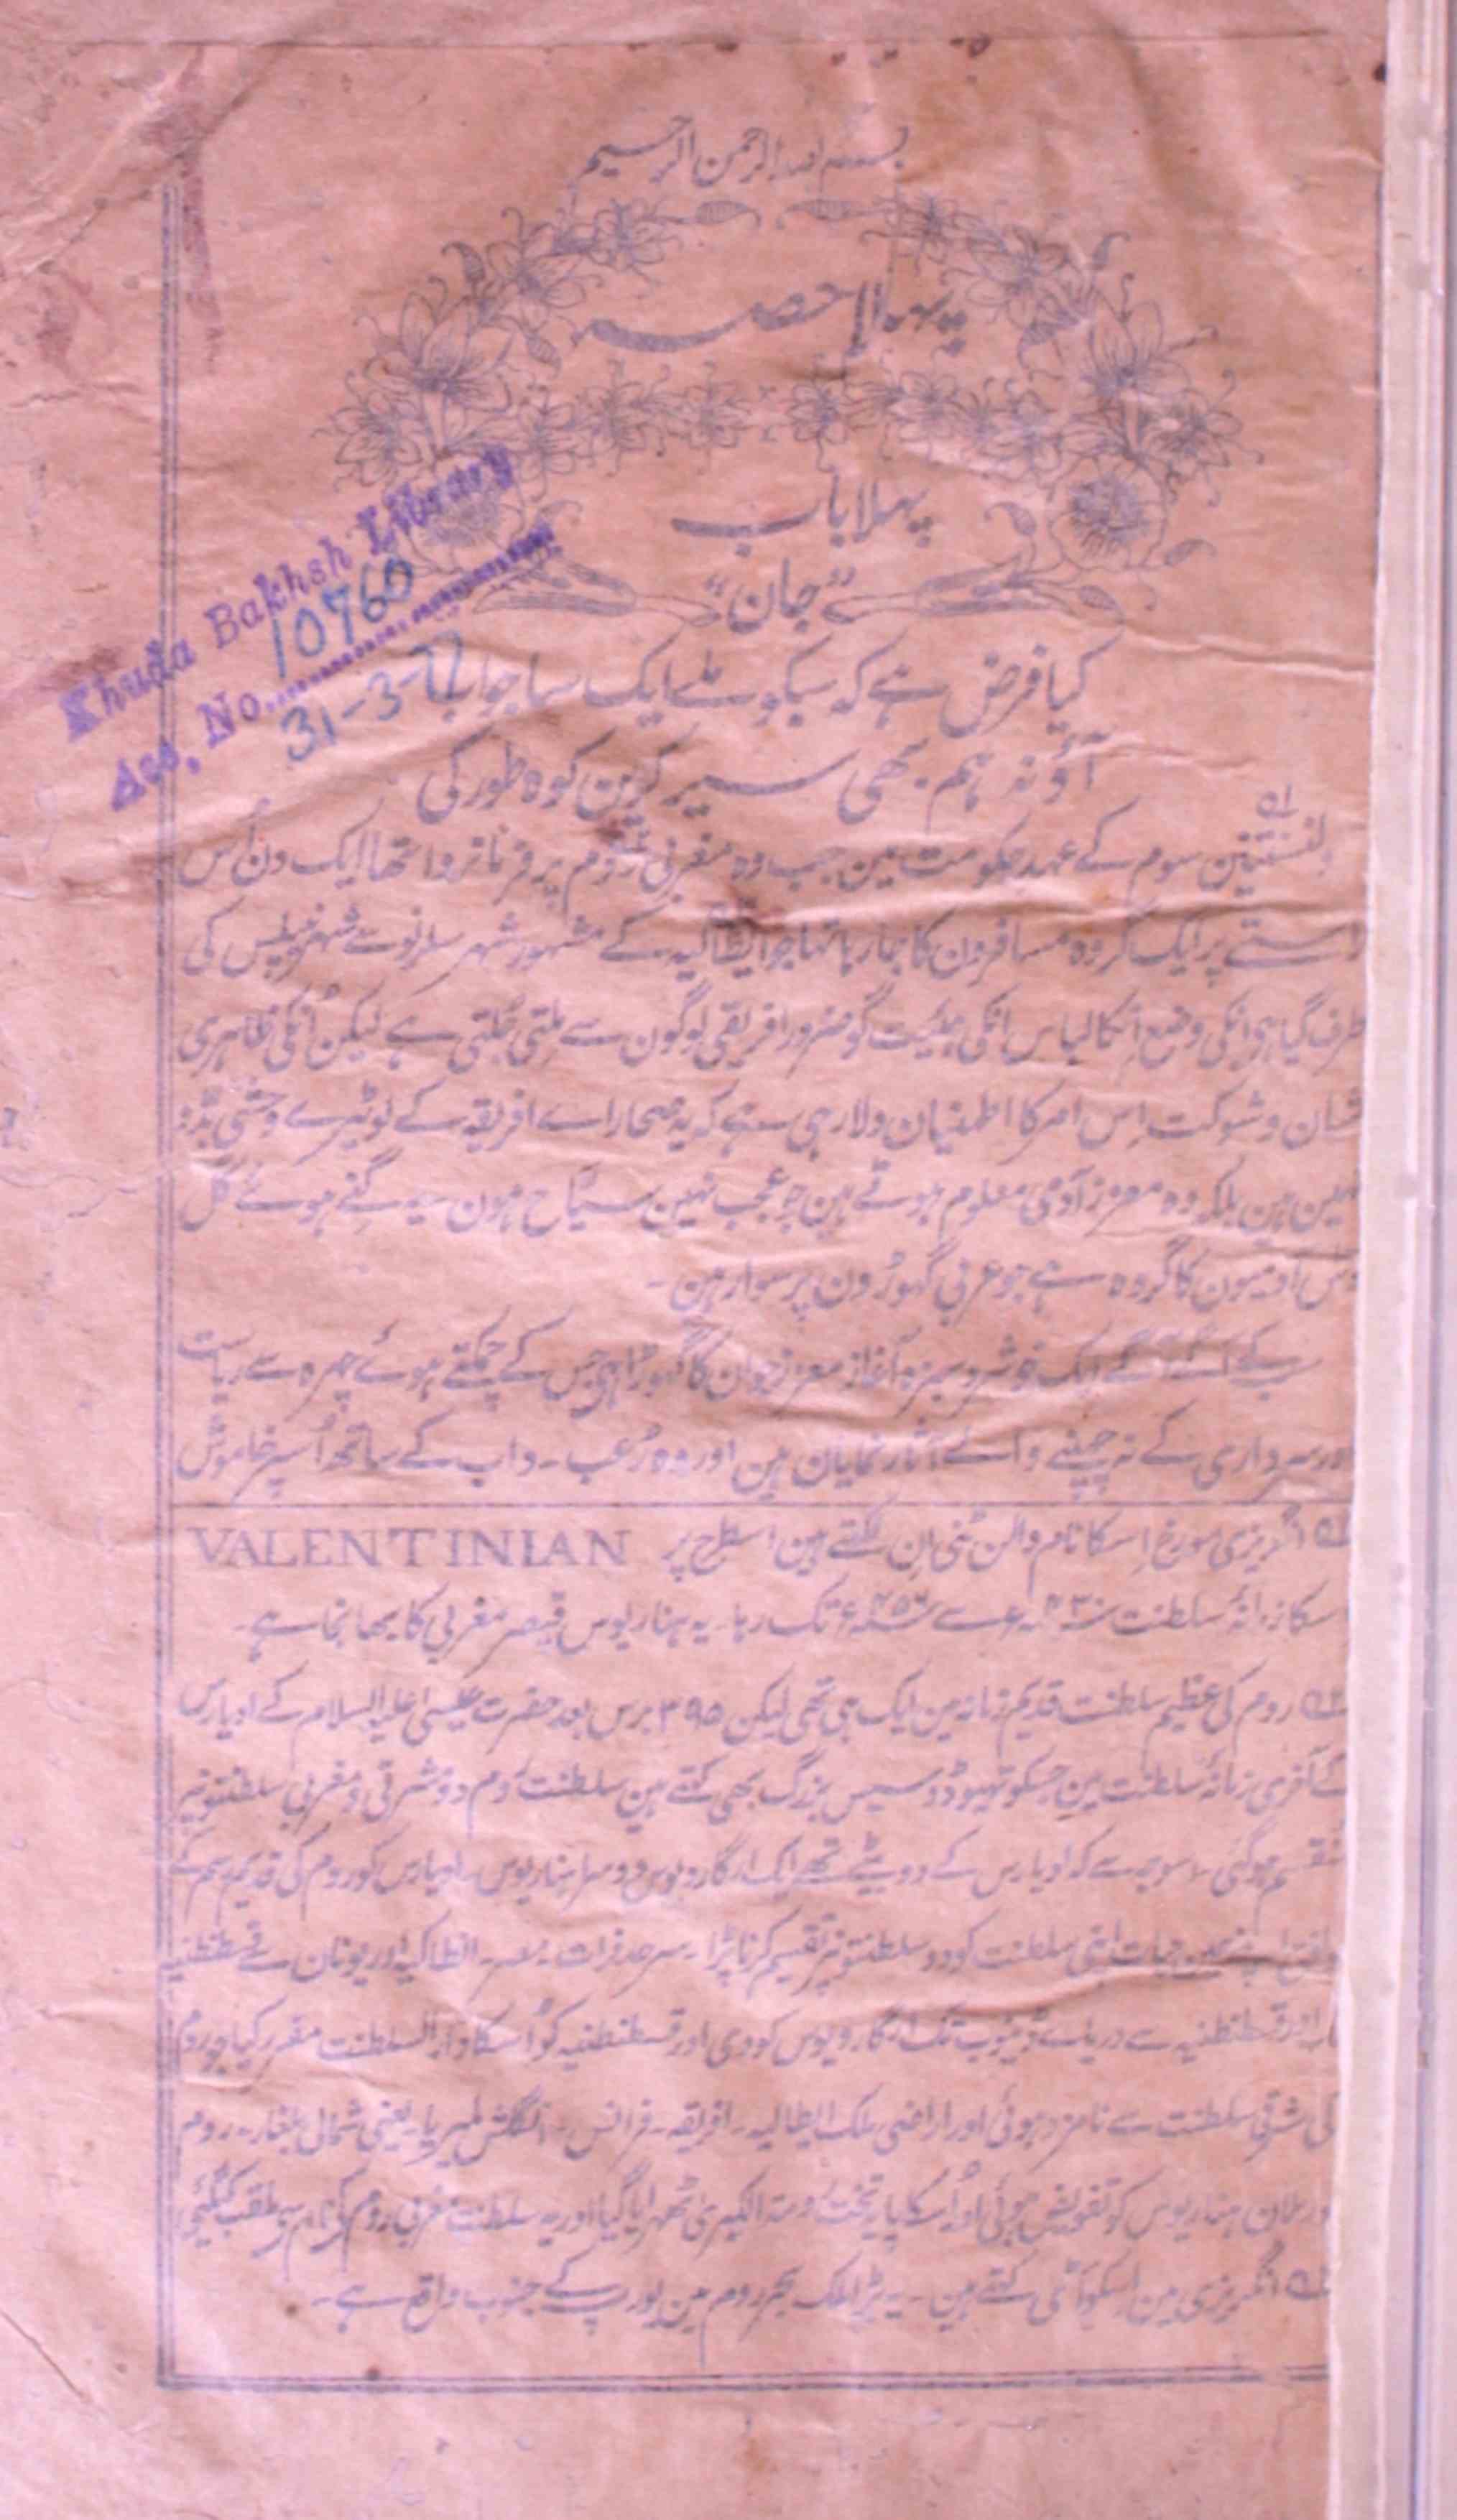 بسم اللہ الرحمن الرحیم
پہلا حصہ
پہلا باب
”جان“
Khuda Bakhsh Library
Acc. No. 10760
31-3-77
کیا فرض ہے کہ سبکو ملے ایک سا جواب
آؤ نہ ہم بھی سیر کرین کوہ طور کی
سوم کے عہد حکومت مین جب وہ مغربی روم پر فرمانروا تھا ایک دن اُس
راستے پر ایک گروہ مسافرون کا جا رہا تھا جو ایطالیہ کے مشہور شہر سلرنو سے شہر نیپلس کی
طرف گیا ہی انکی وضع انکا لباس انکی ہیئت گو ضرور افریقی لوگون سے ملتی جلتی ہے لیکن اُنکی ظاہری
شان و شوکت اِس امر کا اطمنیان دلا رہی ہے کہ یہ صحاراے افریقہ کے لوٹیرے وحشی بدّو
نہین ہین بلکہ وہ معزز آدمی معلوم ہوتے ہین جو عجب نہین سیّاح ہون یہ گنے ہوئے کل
دس آدمیون کا گروہ ہے جو عربی گہوڑون پر سوار ہین۔
سبکے آگے آگے ایک خوشرو سبزہ آغاز معزز جوان کا گہوڑا ہی جس کے چمکتے ہوئے چہرہ سے ریاست
اور سرداری کے نہ چھپنے والے آثار نمایان ہین اور وہ رعب۔ داب کے ساتھ اُسپر خاموش
انگریزی مورخ اِسکا نام والن ٹنی اِن لکھتے ہین اسطرح پر VALENTINIAN
اسکا زمانۂ سلطنت سے تک رہا۔ یہ ہناریوس قیصر مغربی کا بھانجا ہے۔
روم کی عظیم سلطنت قدیم زمانہ مین ایک ہی تھی لیکن ۳۹۵ برس بعد حضرت عیسیٰ علیہ السلام کے اویارس
کے آخری زمانۂ سلطنت مین جسکو تہیوڈوسیس بزرگ بھی کہتے ہین سلطنت روم دو مشرقی و مغربی سلطنتونپر
منقسم ہوگئی۔ اسوجہ سے کہ اویارس کے دو بیٹے تھے ایک ارگادیوس دوسرا ہناریوس۔ اویارس کو روم کی قدیم رسم کے
موافق اپنے حین حیات اپنی سلطنت کو دو سلطنتونپر تقسیم کرنا پڑا۔ سرحد فرات۔ مصر۔ انطاکیہ اور یونان سے قسطنطنیہ
اور قسطنطنیہ سے دریاے ڈینوب تک ارگادیوس کو دی اور قسطنطنیہ کو اُسکا دار السلطنت مقرر کیا جو روم
کی شرقی سلطنت سے نامزد ہوئی اور اراضی ملک ایطالیہ۔ افریقہ۔ فرانس۔ انگلش یعنی شمالی بلغار۔ روم
ہناریوس کو تفویض ہوئی اور اُسکا پایہ تخت رومتہ الکبریٰ ٹھہرایا گیا اور یہ سلطنت مغربی روم کے نام سے ملقب کیگئی
انگریزی مین اِسکو اٹلی کہتے ہین۔ یہ بڑا ملک بحر روم مین یورپ کے جنوب واقع ہے۔